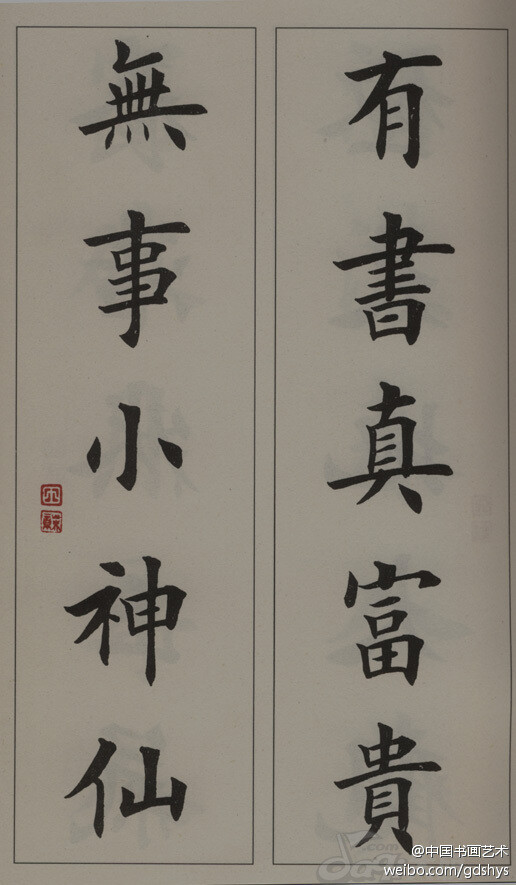 有書真富貴
無事小神仙
@中国书画艺术
weibo.com/gdshys